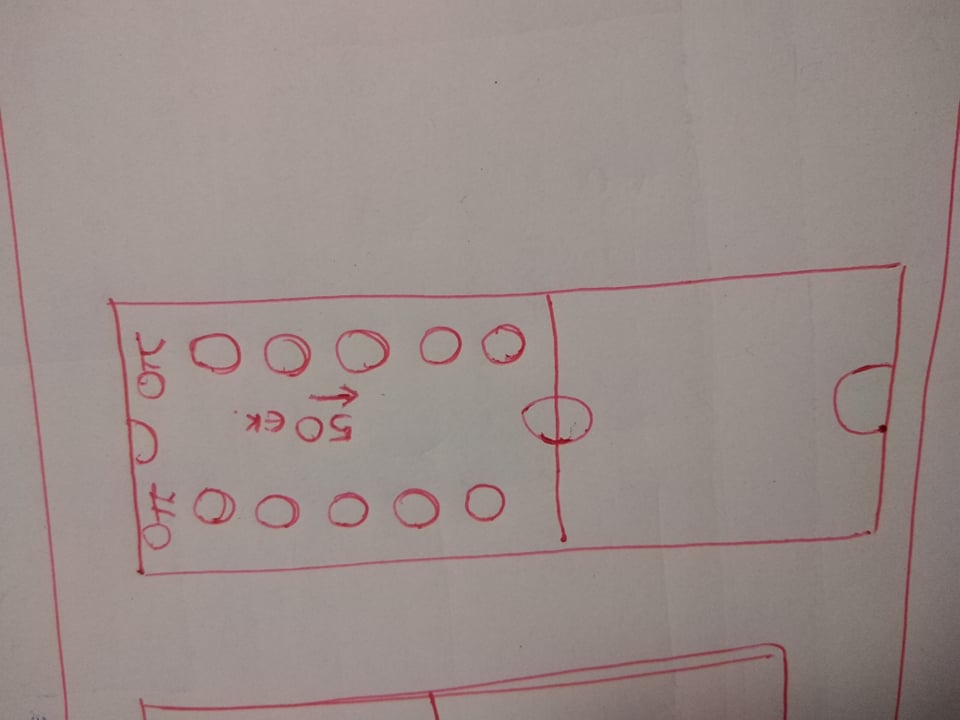 50 εκ.